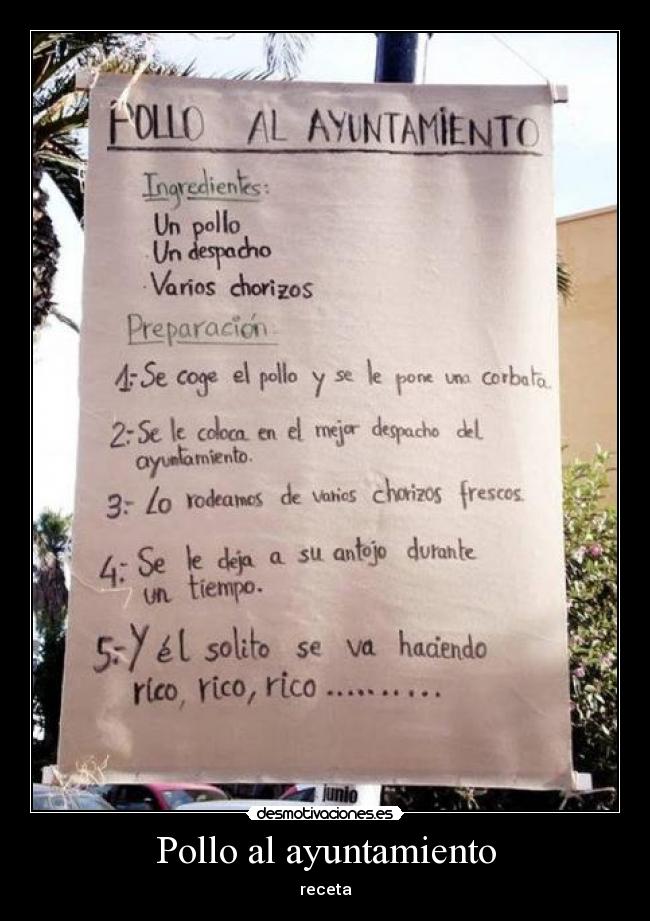 POLLO AL AYUNTAMIENTO
Ingredientes:
Un pollo
Un despacho
Varios chorizos
Preparación
1:- Se coge el pollo y se le pone una corbata.
2:- Se le coloca en el mejor despacho del
ayuntamiento.
3:- Lo rodeamos de varios chorizos frescos.
4:- Se le deja a su antojo durante
un tiempo.
5:- Y él solito se va haciendo
rico, rico, rico ..........
junio
desmotivaciones.es
Pollo al ayuntamiento
receta